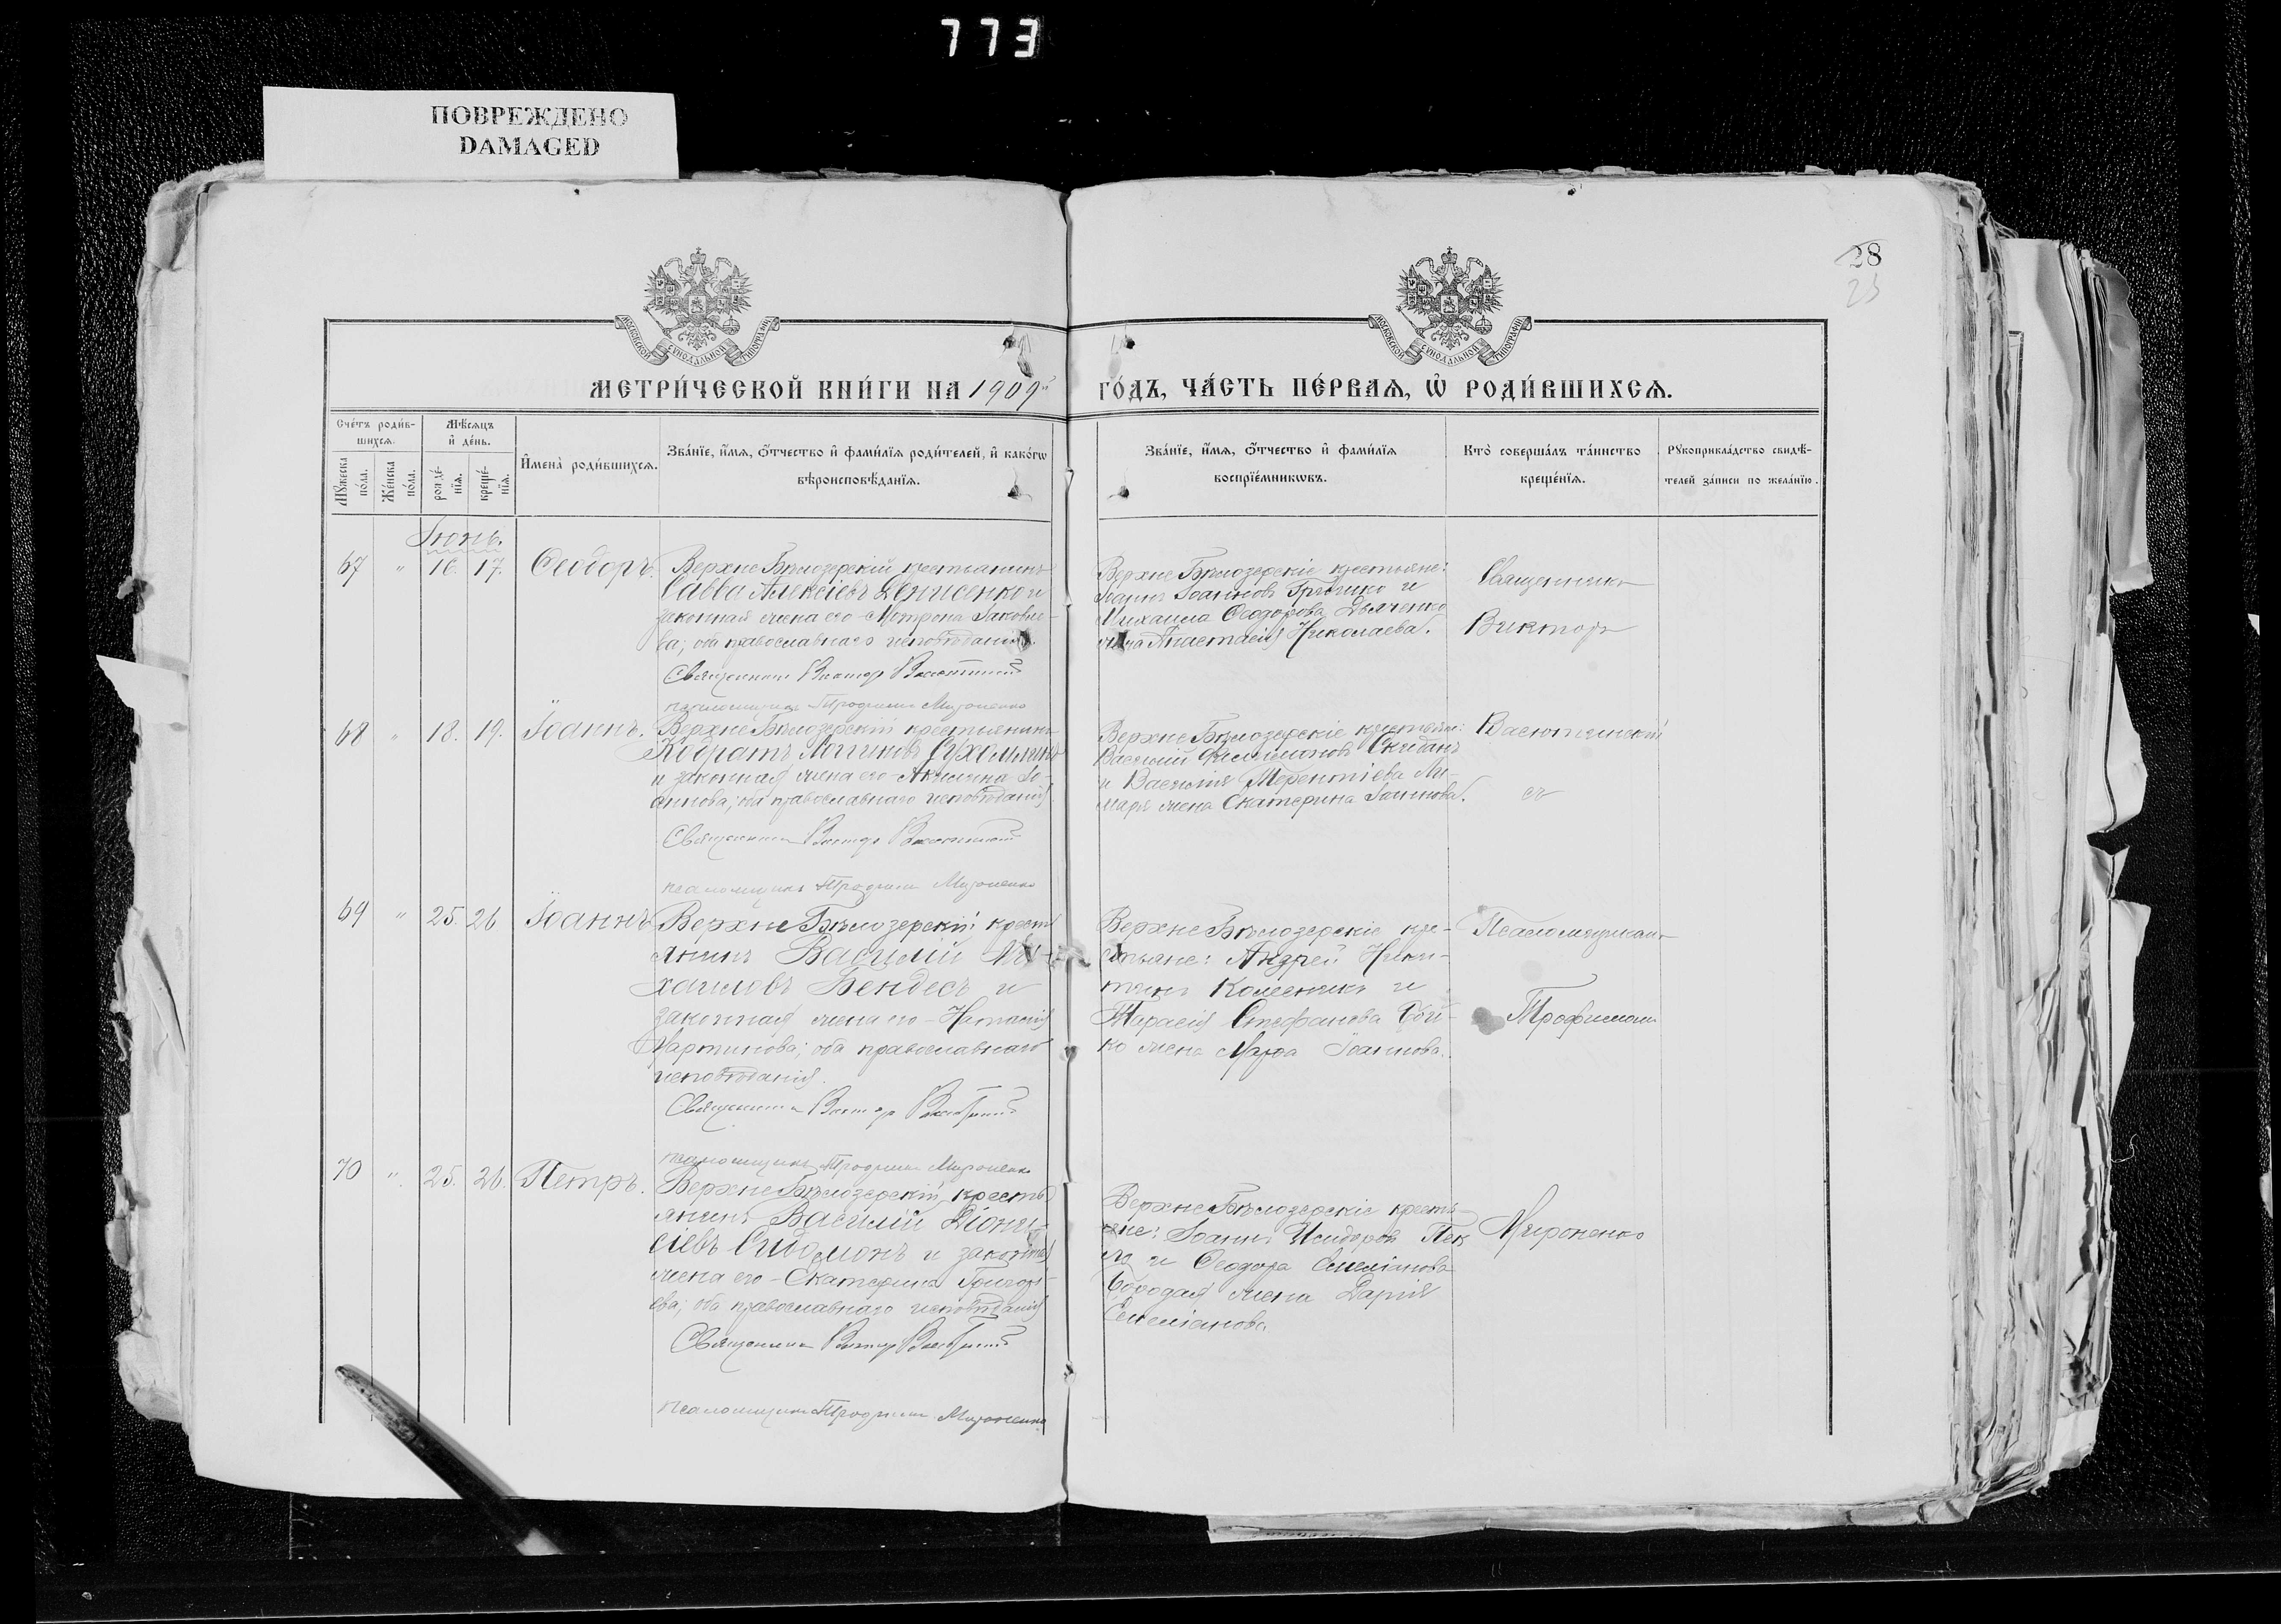 773
ПОВРЕЖДЕНО
DAMAGED
28
23
МОСКОВСКОЙ СѴНОДАЛЬНОЙ ТИПОГРАФІИ
МОСКОВСКОЙ СѴНОДАЛЬНОЙ ТИПОГРАФІИ
МЕТРИ́ЧЕСКОЙ КНИ́ГИ НА 1909й ГО́ДЪ, ЧА́СТЬ ПЕ́РВАѦ, Ѽ РОДИ́ВШИХСѦ.
Сче́тъ роди́в-
шихсѧ.
Мѣ́сѧцъ
и҆ де́нь.
Мꙋ́жеска
по́ла.
Же́нска
по́ла.
рожде́-
нїѧ.
креще́-
нїѧ.
И҆мена̀ роди́вшихсѧ.
Зва́нїе, и҆́мѧ, ѻ҆́тчество и҆ фами́лїѧ роди́телей, и҆ како́гѡ
вѣроисповѣ́данїѧ.
Зва́нїе, и҆́мѧ, ѻ҆́тчество и҆ фами́лїѧ
воспрїе́мникѡвъ.
Кто̀ соверша́лъ та́инство
креще́нїѧ.
Рꙋкоприкла́дство свидѣ́-
телей за́писи по жела́нїю.
Іюнь.
67 " 16. 17. Ѳеодоръ.
ВерхнеБѣлозерскій крестьянинъ
Савва Алексіевъ Денисенко и
законная жена его - Матрона Іаковле-
ва; оба православнаго исповѣданія.
Священникъ Викторъ Васютинскій
псаломщикъ Трофимъ Мироненко
ВерхнеБѣлозерскіе крестьяне:
Іоаннъ Іоанновъ и
Михаила Ѳеодорова Дьяченко
жена Анастасія Николаева.
Священникъ
Викторъ
68 " 18. 19. Іоаннъ.
ВерхнеБѣлозерскій крестьянинъ
Кодратъ Логиновъ Сухомлинъ
и законная жена его - Акилина Іо-
аннова; оба православнаго исповѣданія.
Священникъ Викторъ Васютинскій
псаломщикъ Трофимъ Мироненко
ВерхнеБѣлозерскіе крестьяне:
Василій Филимоновъ Скиданъ
и Василія Терентіева Ли-
маря жена Екатерина Іоаннова.
Васютинскій
съ
69 " 25. 26 Іоаннъ
ВерхнеБѣлозерскій кресть
янинъ Василій Ми-
хаиловъ Бендесъ и
законная жена его - Наталія
Мартинова; оба православнаго
исповѣданія.
Священникъ Викторъ Васютинскій
псаломщикъ Трофимъ Мироненко
ВерхнеБѣлозерскіе кре-
стьяне: Андрей Ники-
тинъ Колесникъ и
Тарасія Стефанова Бой-
ко жена Марѳа Іоаннова.
Псаломщикомъ
Трофимомъ
70 " 25. 26. Петръ.
ВерхнеБѣлозерскій кресть
янинъ Василій Діони-
сіевъ и законная
жена его - Екатерина Григорі-
ева; оба православнаго исповѣданія
Священникъ Викторъ Васютинскій
псаломщикъ Трофимъ Мироненко
ВерхнеБѣлозерскіе кресть-
яне: Іоаннъ Исидоровъ
и Ѳеодора Емеліанова
Бородая жена Дарія
Емеліанова.
Мироненко